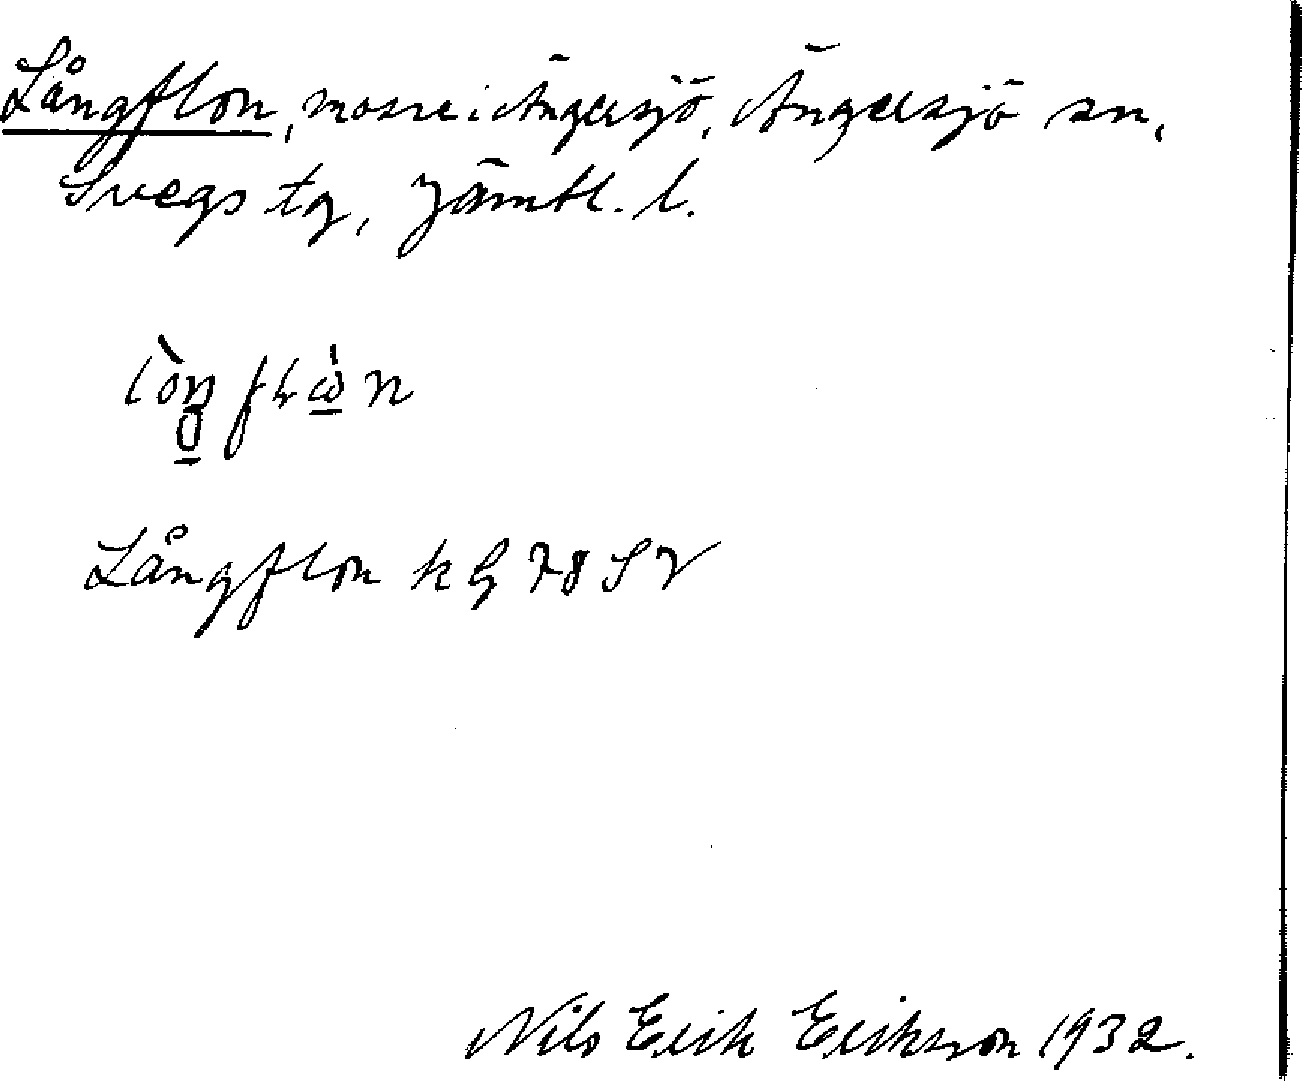 Långflon, mosse i Ängersjö, Ängersjö sn,
Svegs tg, Jämtl. l.
Långflon k G 78 SV
Nils Erik Erikson 1932.